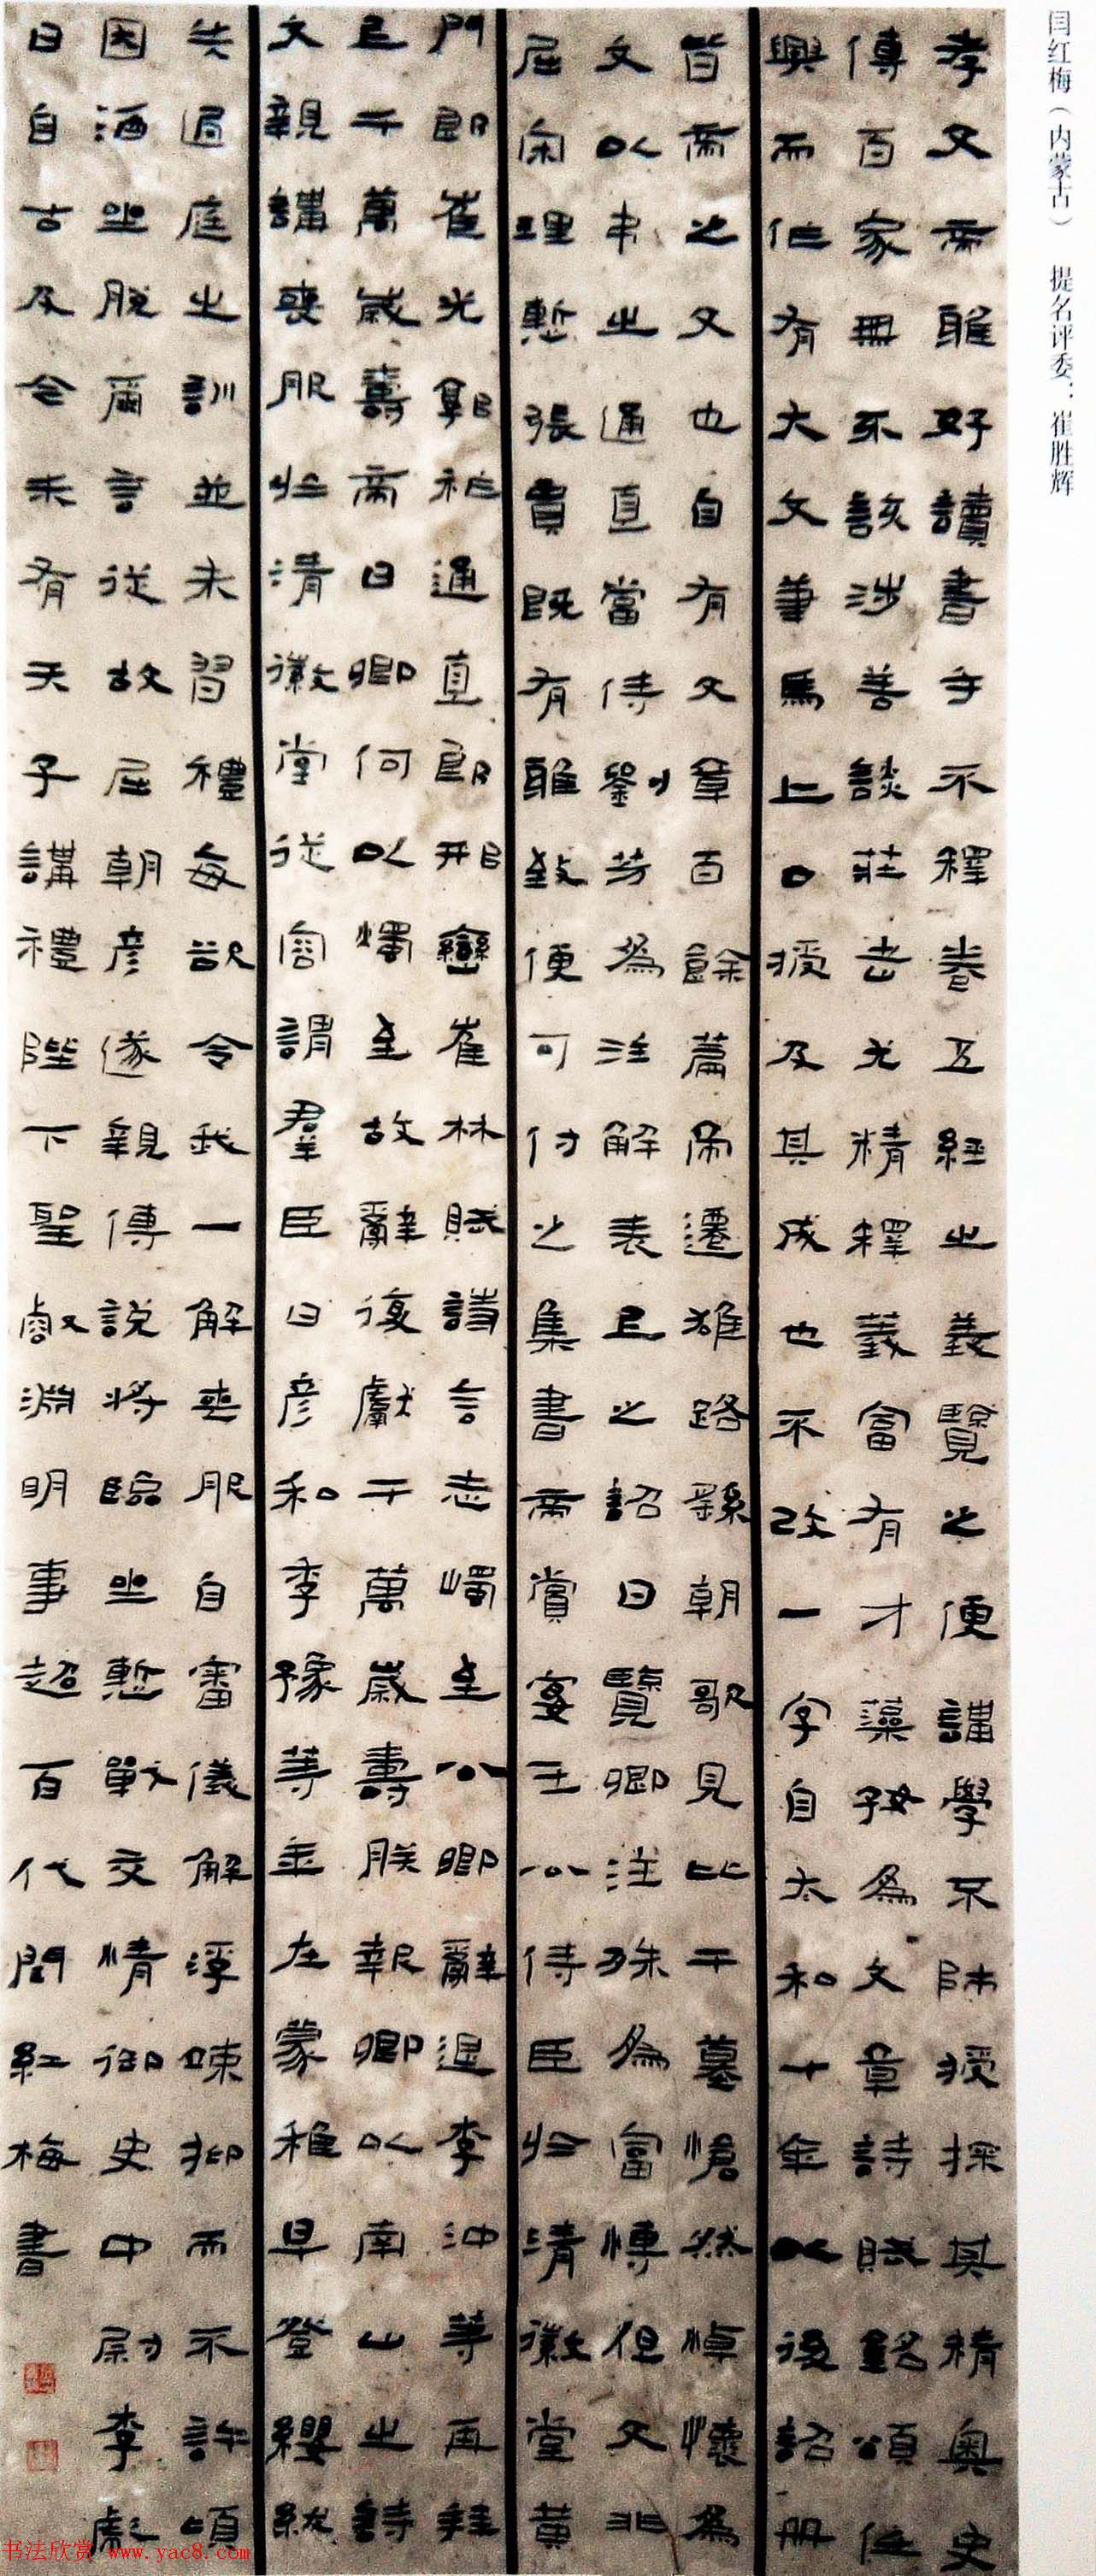 闫红梅（内蒙古）　提名评委：崔胜辉
孝文帝雅好讀書手不釋卷五經之義覽之便講學不師授探其精奧史
傳百家無不該涉善談莊老尤精釋義富有才藻好為文章詩賦銘頌任
興而作有大文筆馬上口授及其成也不改一字自太和十年以後詔冊
皆帝之文也自有文章百餘篇帝遷雒路繇朝歌見比干墓愴然悼懷為
文以弔之通直當侍劉芳為注解表上之詔曰覽卿注殊為富博但文非
屈宋理慙張賈既有雅致便可付之集書帝賞宴王公侍臣於清徽堂黃
門郎崔光郭祚通直郎邢巒崔林賦詩言志燭至公卿辭退李沖等再拜
上千萬歲壽帝曰卿何以燭至故辭復獻千萬歲壽朕報卿以南山之詩
文親講喪服於清徽堂從容謂羣臣曰彥和季豫等年在蒙稚早登纓紱
失過庭之訓並未習禮每欲令我一解喪服自審儀解浮疎抑而不許頃
因酒坐脫爾言從故屈朝彥遂親傳說將臨坐慙戰交情御史中尉李彪
曰自古及今未有天子講禮陛下聖叡淵明事超百代閆紅梅書
书法欣赏 www.yac8.com